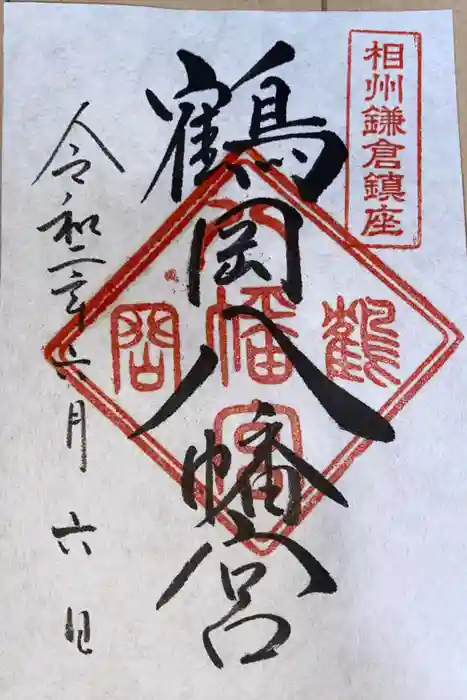 相州鎌倉鎮座
鶴岡八幡宮
鶴岡八幡宮
令和二年六月六日